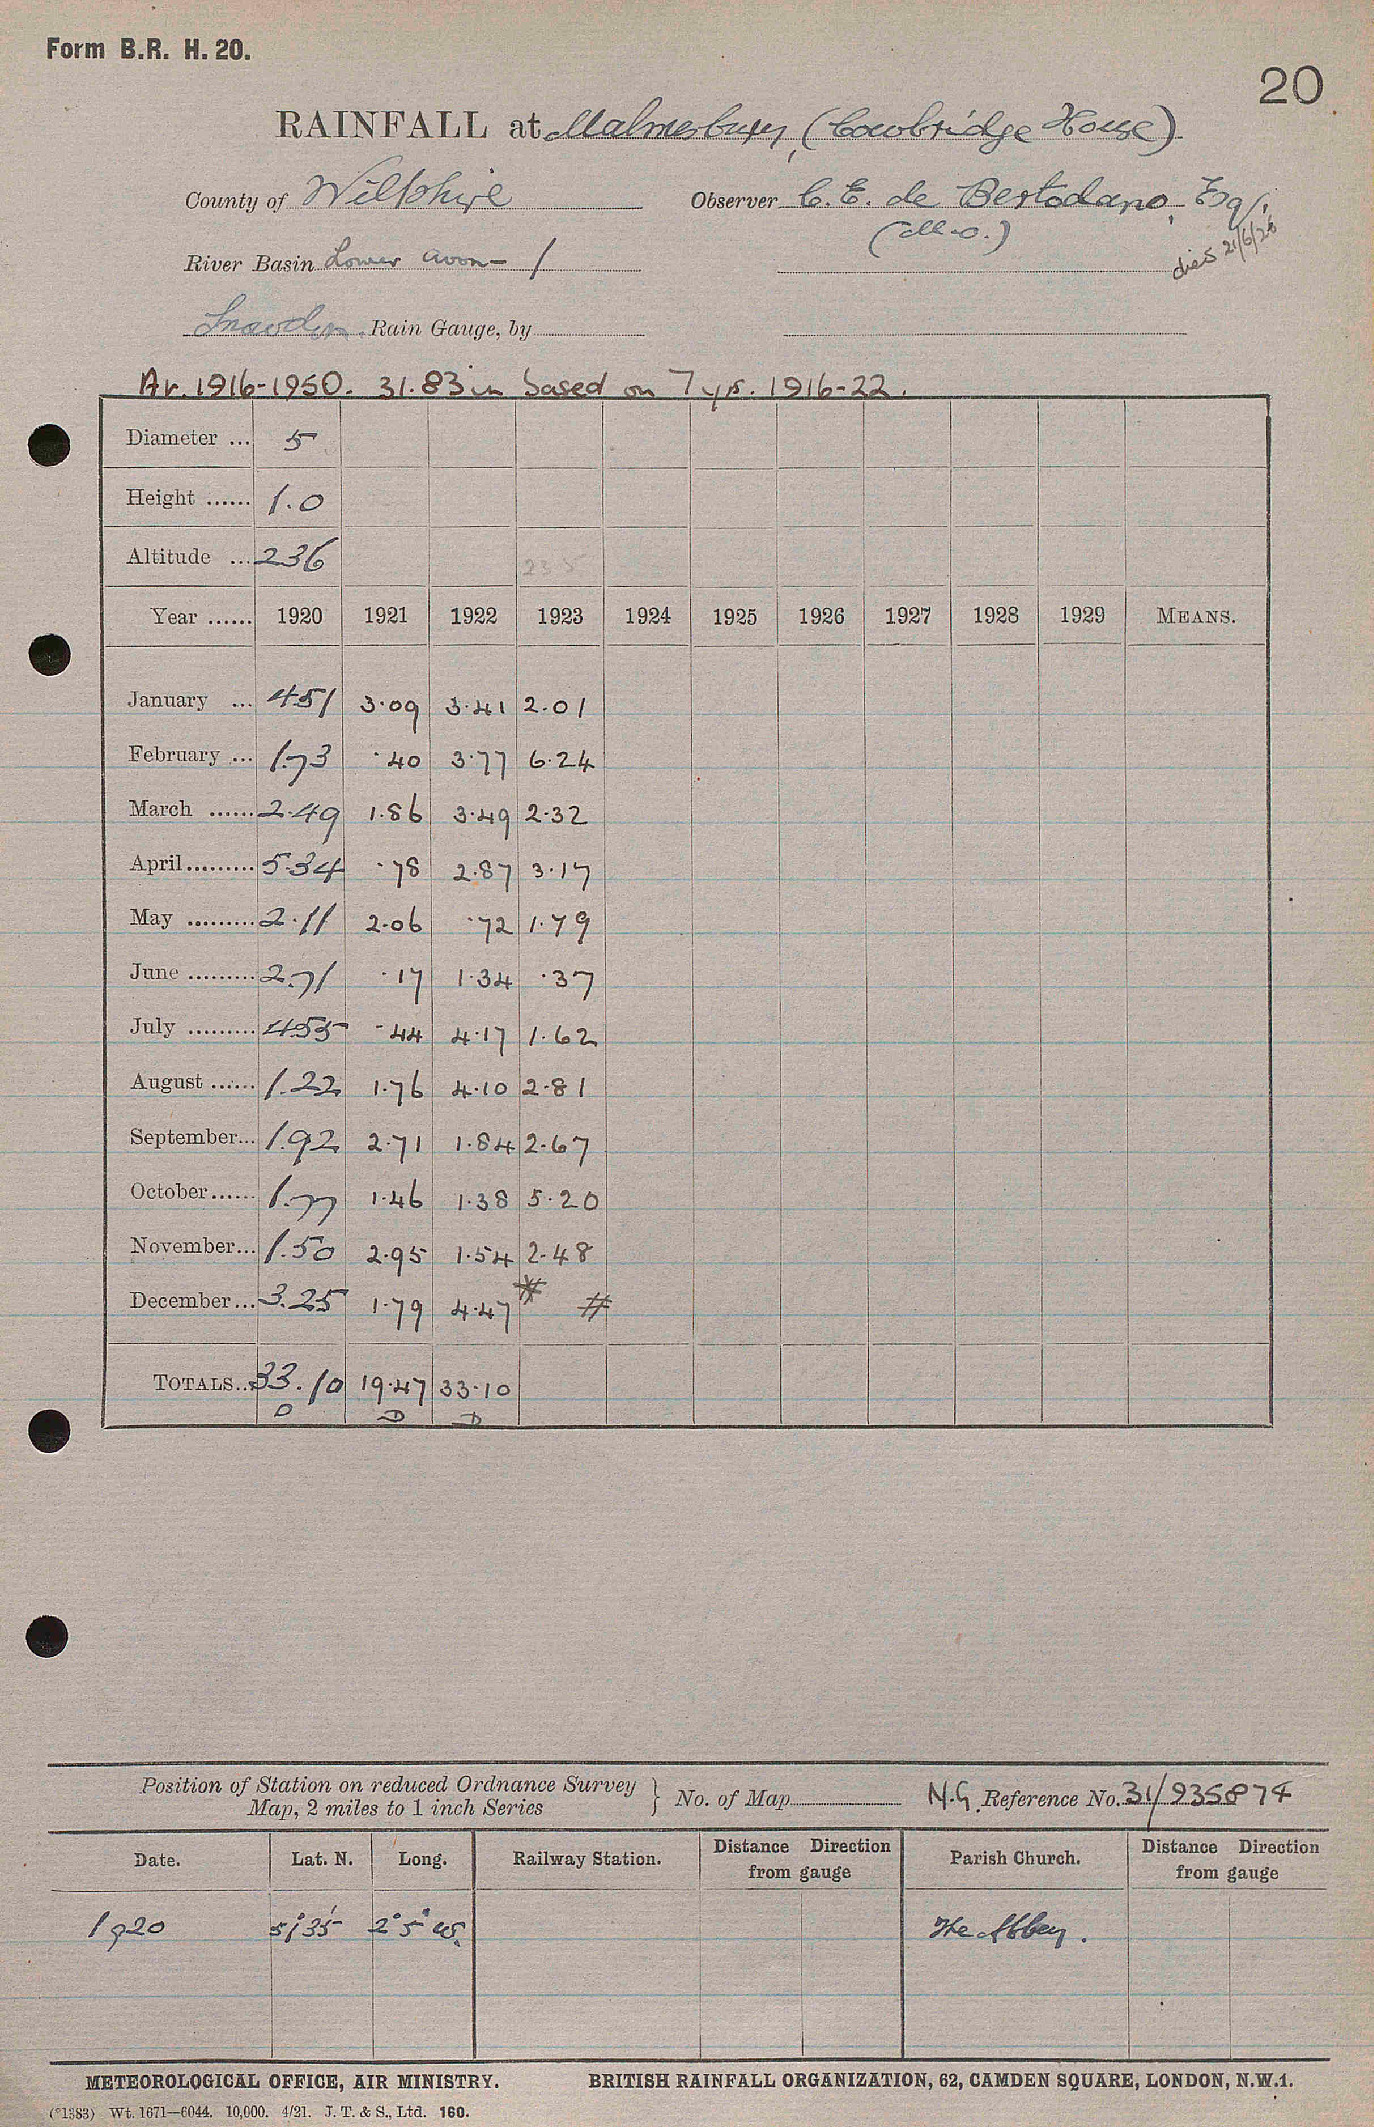 Form B.R. H. 20.
20
RAINFALL at Malmesbury, (Cowbridge House)
County of Wiltshire Observer C. E. de Bertodano, Esq.
(M.O.)
died 21/6/26
River Basin Lower Avon - 1
Snowdon Rain Gauge, by
Av. 1916-1950. 31.83 in based on 7 yrs. 1916-22.
Diameter ... 5
Height ...... 1.0
Altitude ... 236 235
Year ...... 1920 1921 1922 1923 1924 1925 1926 1927 1928 1929 MEANS.
January ... 4.51 3.09 3.41 2.01
February ... 1.73 .40 3.77 6.24
March ...... 2.49 1.86 3.49 2.32
April ......... 5.34 .78 2.87 3.17
May ......... 2.11 2.06 .72 1.79
June ......... 2.71 .17 1.34 .37
July ......... 4.55 .44 4.17 1.62
August ...... 1.22 1.76 4.10 2.81
September... 1.92 2.71 1.84 2.67
October ...... 1.77 1.46 1.38 5.20
November... 1.50 2.95 1.54 2.48
December ... 3.25 1.79 4.47 # #
TOTALS.. 33.10 19.47 33.10
D D D
Position of Station on reduced Ordnance Survey
Map, 2 miles to 1 inch Series } No. of Map N.G. Reference No. 31/935874
Date. Lat. N. Long. Railway Station. Distance Direction from gauge Parish Church. Distance Direction from gauge
1920 51°35' 2°5' W. The Abbey.
METEOROLOGICAL OFFICE, AIR MINISTRY. BRITISH RAINFALL ORGANIZATION, 62, CAMDEN SQUARE, LONDON, N.W.1.
(*1383) Wt. 1671—6044. 10,000. 4/21. J. T. & S., Ltd. 160.